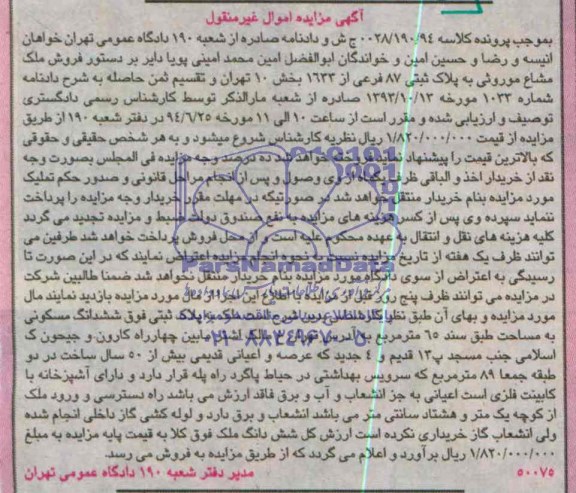 آگهی مزایده اموال غیرمنقول
بموجب پرونده کلاسه ۰۰۲۸/۱۹۰/۹۴ ج ش و دادنامه صادره از شعبه ۱۹۰ دادگاه عمومی تهران خواهان
انیسه و رضا و حسین امین و خواندگان ابوالفضل امین محمد امینی پویا دایر بر دستور فروش ملک
مشاع موروثی به پلاک ثبتی ۸۷ فرعی از ۱۶۳۳ بخش ۱۰ تهران و تقسیم ثمن حاصله به شرح دادنامه
شماره ۱۰۳۳ مورخه ۱۳۹۳/۱۰/۱۳ صادره از شعبه مارالذکر توسط کارشناس رسمی دادگستری
توصیف و ارزیابی شده و مقرر است از ساعت ۱۰ الی ۱۱ مورخه ۹۴/۶/۲۵ در دفتر شعبه ۱۹۰ از طریق
مزایده از قیمت ۱/۸۲۰/۰۰۰/۰۰۰ ریال نظریه کارشناس شروع میشود و به هر شخص حقیقی و حقوقی
که بالاترین قیمت را پیشنهاد نماید فروخته خواهد شد ده درصد وجه مزایده فی المجلس بصورت وجه
نقد از خریدار اخذ و الباقی ظرف یکماه از وی وصول و پس از انجام مراحل قانونی و صدور حکم تملیک
مورد مزایده بنام خریدار منتقل خواهد شد در صورتیکه در مهلت مقرر خریدار وجه مزایده را پرداخت
ننماید سپرده وی پس از کسر هزینه های مزایده به نفع صندوق دولت ضبط و مزایده تجدید می گردد
کلیه هزینه های نقل و انتقال به عهده محکوم علیه است و از محل فروش پرداخت خواهد شد طرفین می
توانند ظرف یک هفته از تاریخ مزایده نسبت به نحوه انجام مزایده اعتراض نمایند که در این صورت تا
رسیدگی به اعتراض از سوی دادگاه مورد مزایده بنام خریدار منتقل نخواهد شد ضمنا طالبین شرکت
در مزایده می توانند ظرف پنج روز قبل از مزایده با اطلاع این اجرا از مال مورد مزایده بازدید نمایند مال
مورد مزایده و بهای آن طبق نظر کارشناس بدین شرح است ملک به پلاک ثبتی فوق ششدانگ مسکونی
به مساحت طبق سند ۶۵ مترمربع به آدرس مابین چهارراه کارون و جیحون ک
اسلامی جنب مسجد پ۱۳ قدیم و ۴ جدید که عرصه و اعیانی قدیمی بیش از ۵۰ سال ساخت در دو
طبقه جمعا ۸۹ مترمربع که سرویس بهداشتی در حیاط پاگرد راه پله قرار دارد و دارای آشپزخانه با
کابینت فلزی است اعیانی به جز انشعاب و آب و برق فاقد ارزش می باشد راه دسترسی و ورود ملک
از کوچه یک متر و هشتاد سانتی متر می باشد انشعاب و برق دارد و لوله کشی گاز داخلی انجام شده
ولی انشعاب گاز خریداری نکرده است ارزش کل شش دانگ ملک فوق کلا به قیمت پایه مزایده به مبلغ
۱/۸۲۰/۰۰۰/۰۰۰ ریال برآورد و اعلام می گردد که از طریق مزایده به فروش می رسد.
۵۰۰۷۵ مدیر دفتر شعبه ۱۹۰ دادگاه عمومی تهران
ParsNamadData
۰۲۱-۸۸۳۴۹۶۷۰-۵